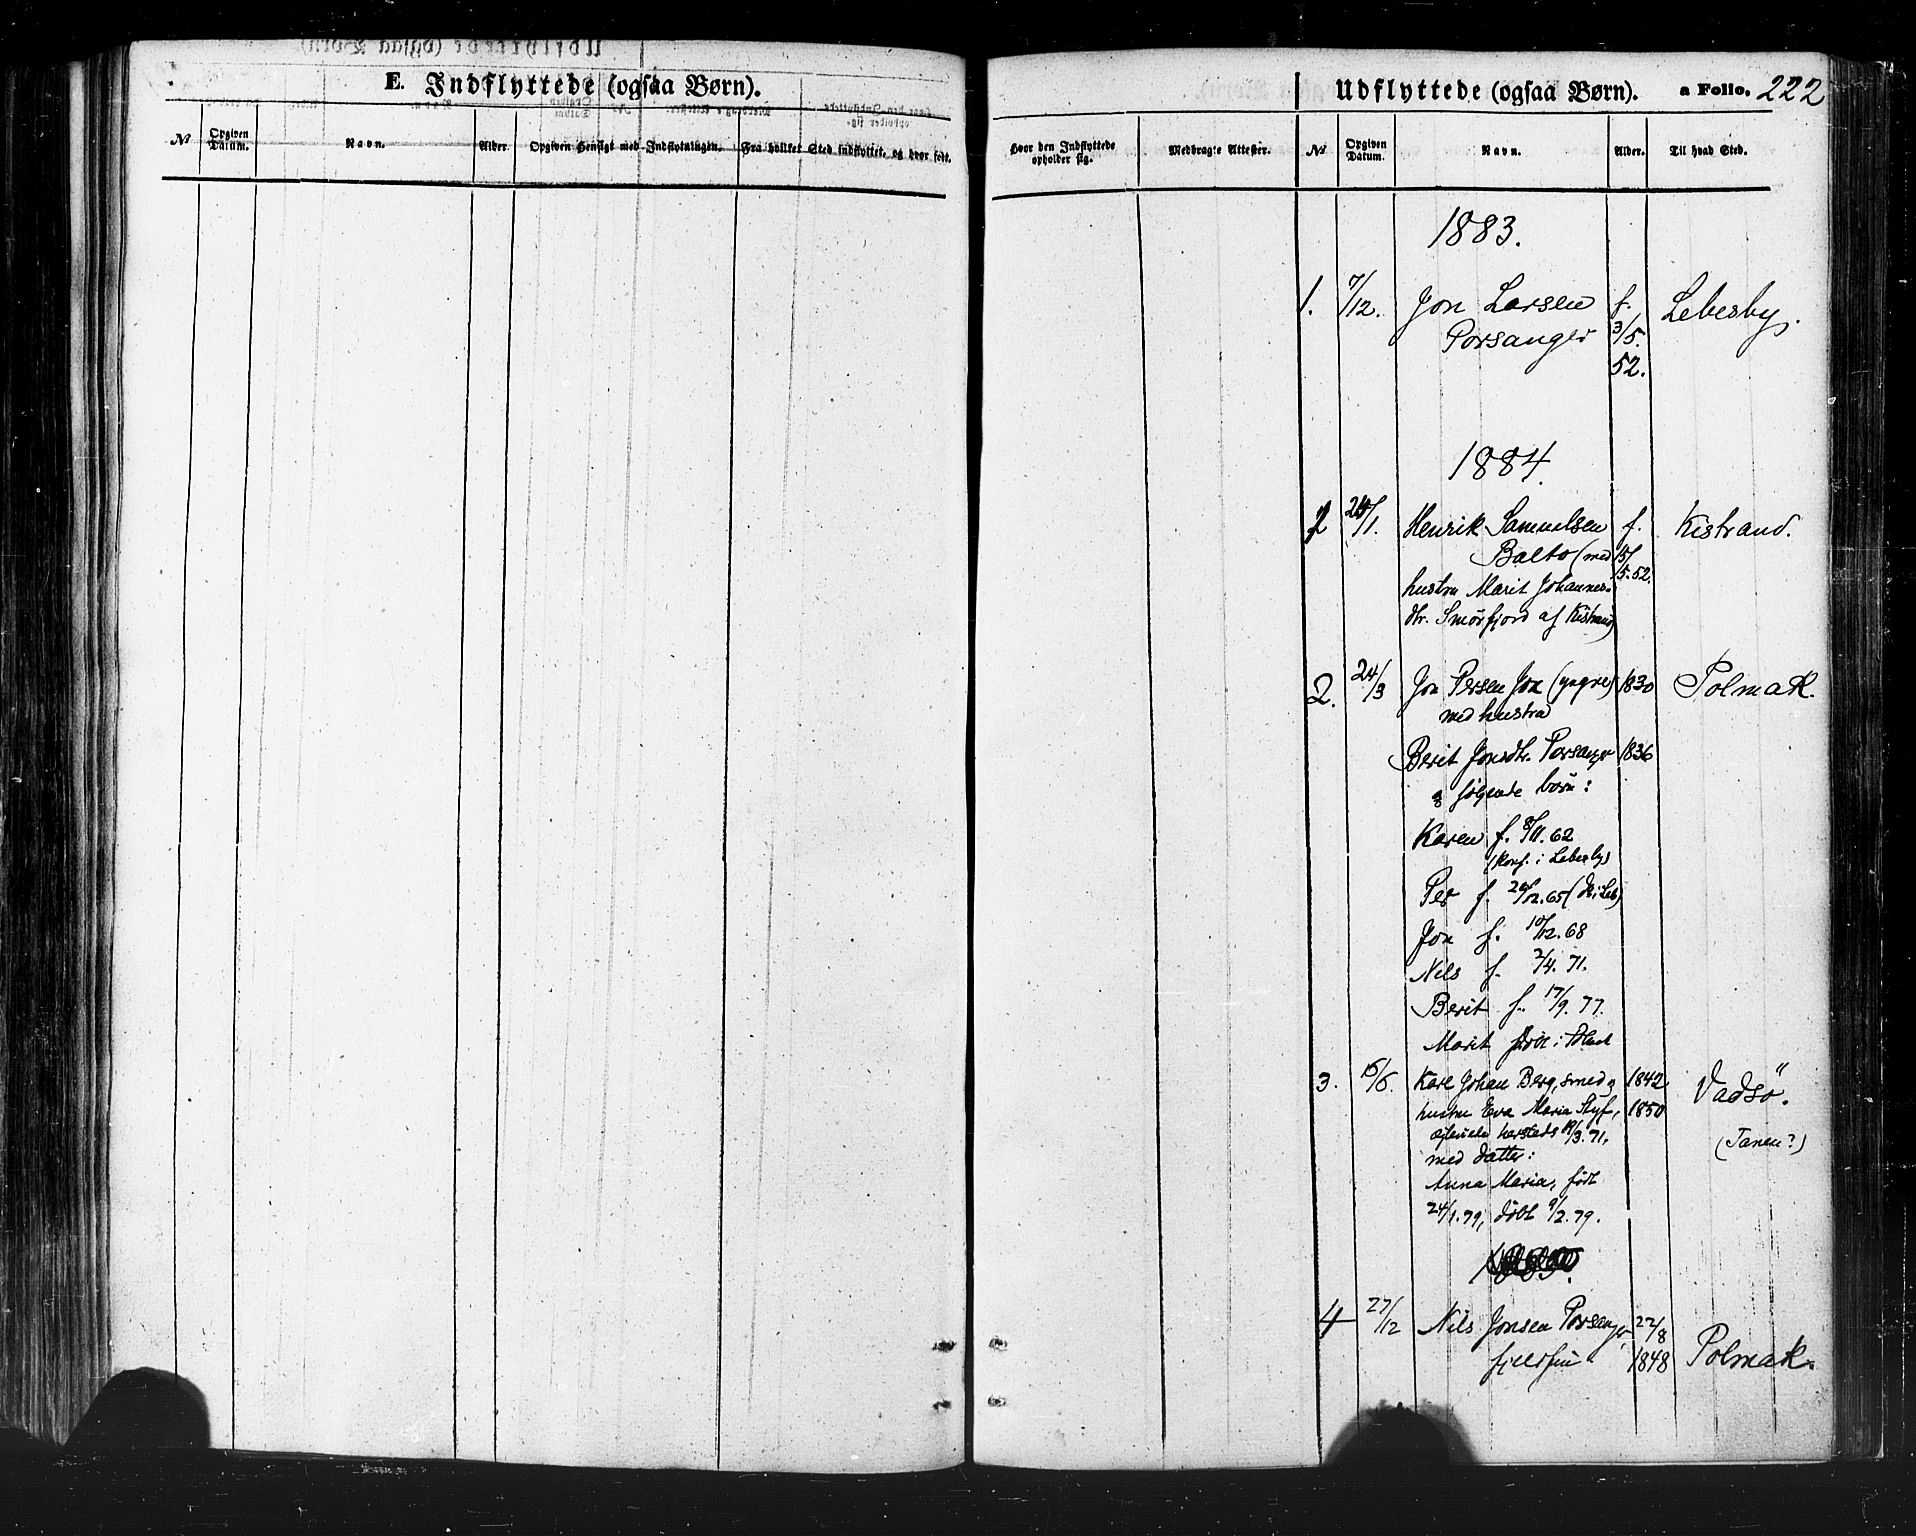 E. Indflyttede (ogsaa Børn).
№ Opgiven Datum. Navn. Alder. Opgiven Hensigt med Indflytningen. Fra hvilket Sted indflyttet, og hvor født.
Udflyttede (ogsaa Børn). a Folio. 222
Hvor den Indflyttede opholder sig. Medbragte Attester. № Opgiven Datum. Navn. Alder. Til hvad Sted.
1883.
1. 7/12. Jon Larsen f. Lebesby.
Porsanger 3/5.
52.
1884.
1/1. Henrik Samuelsen f. Kistrand.
Balto (med 15/
hustru Marit Johannes- 5.52.
dtr. Smörfjord af Kistrand)
2. 24/3 Jon Persen Jox (yngre) 1830 Polmak.
med hustru
Berit Jonsdtr. Porsanger 1836
& følgende børn:
Karen f. 8/11.62
(konf. i Lebesby)
Per f. 12.65 (do i Leb)
Jon f. 10/12.68
Nils f. 2/4.71.
Berit f. 17/9.77.
Marit
3. 15/6. Karl Johan Berg, smed & 1842 Vadsö.
hustru Eva Maria Styf, 1850
ægteviede hersteds 19/3.71,
(Tanen?)
med datter:
Anna Maria, født
24/1.79, döbt 9/2.79.
4 27/12 Nils Jonsen Porsanger 27/8
fjeldfin 1848 Polmak.